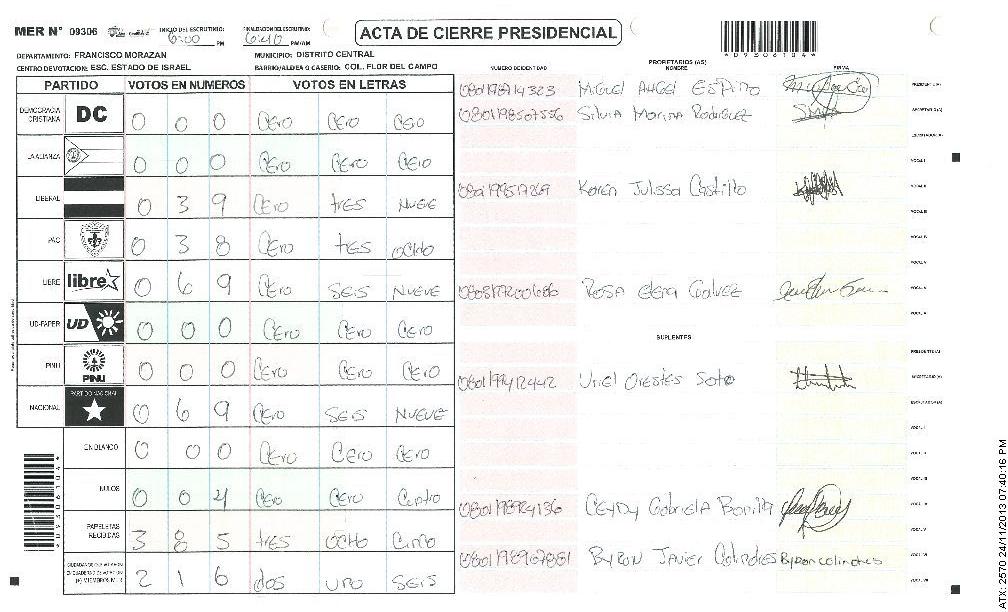 MER N° 09306 INICIO DEL ESCRUTINIO: 6:00 PM FINALIZACION DEL ESCRUTINIO: 6:40 PM/AM
ACTA DE CIERRE PRESIDENCIAL
*09306104*
DEPARTAMENTO: FRANCISCO MORAZAN MUNICIPIO: DISTRITO CENTRAL
CENTRO DE VOTACION: ESC. ESTADO DE ISRAEL BARRIO/ALDEA O CASERIO: COL. FLOR DEL CAMPO
PARTIDO VOTOS EN NUMEROS VOTOS EN LETRAS
DEMOCRACIA CRISTIANA DC 0 0 0 Cero Cero Cero
LA ALIANZA 0 0 0 Cero Cero Cero
LIBERAL 0 3 9 Cero tres Nueve
PAC 0 3 8 Cero tres ocho
LIBRE libre 0 6 9 Cero Seis Nueve
UD-FAPER UD 0 0 0 Cero Cero Cero
PINU PINU 0 0 0 Cero Cero Cero
NACIONAL PARTIDO NACIONAL 0 6 9 Cero Seis Nueve
EN BLANCO 0 0 0 Cero Cero Cero
NULOS 0 0 4 Cero Cero Cuatro
PAPELETAS RECIBIDAS 3 8 5 tres ocho Cinco
2 1 6 dos uno Seis
NUMERO IDENTIDAD PROPIETARIOS (AS) NOMBRE FIRMA
Miguel Angel Espino PRESIDENTE(A)
Silvia Marina Rodriguez SECRETARIO(A)
ESCRUTADOR(A)
VOCAL I
Karen Julissa Castillo VOCAL II
VOCAL III
VOCAL IV
VOCAL V
Rosa
SUPLENTES
PRESIDENTE(A)
Uriel Orestes Soto SECRETARIO(A)
ESCRUTADOR(A)
VOCAL I
VOCAL II
VOCAL III
Ceydy Gabriela Bonilla
Byron Javier Colindres Byron colindres
ATX: 2570 24/11/2013 07:40:16 PM